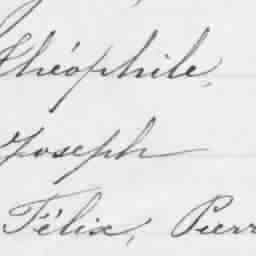 Théophile,
Joseph
Félix, Pierr